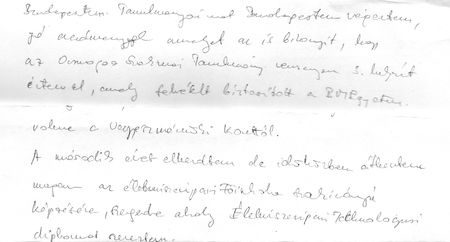 Budapesten. Tanulmányaimat Budapesten végeztem,
jó eredménnyel amelyet az is bizonyít, hogy
az Országos Szakmai Tanulmányi versenyen 3. helyet
értem el, amely felvételt biztosított a
volna a Vegyipari
A második évet elkezdtem de időközben átkértem
magam az élelmiszeripari Főiskola szakirányú
képzésére, Szegedre ahol Élelmiszeripari Technológusi
diplomát szereztem.